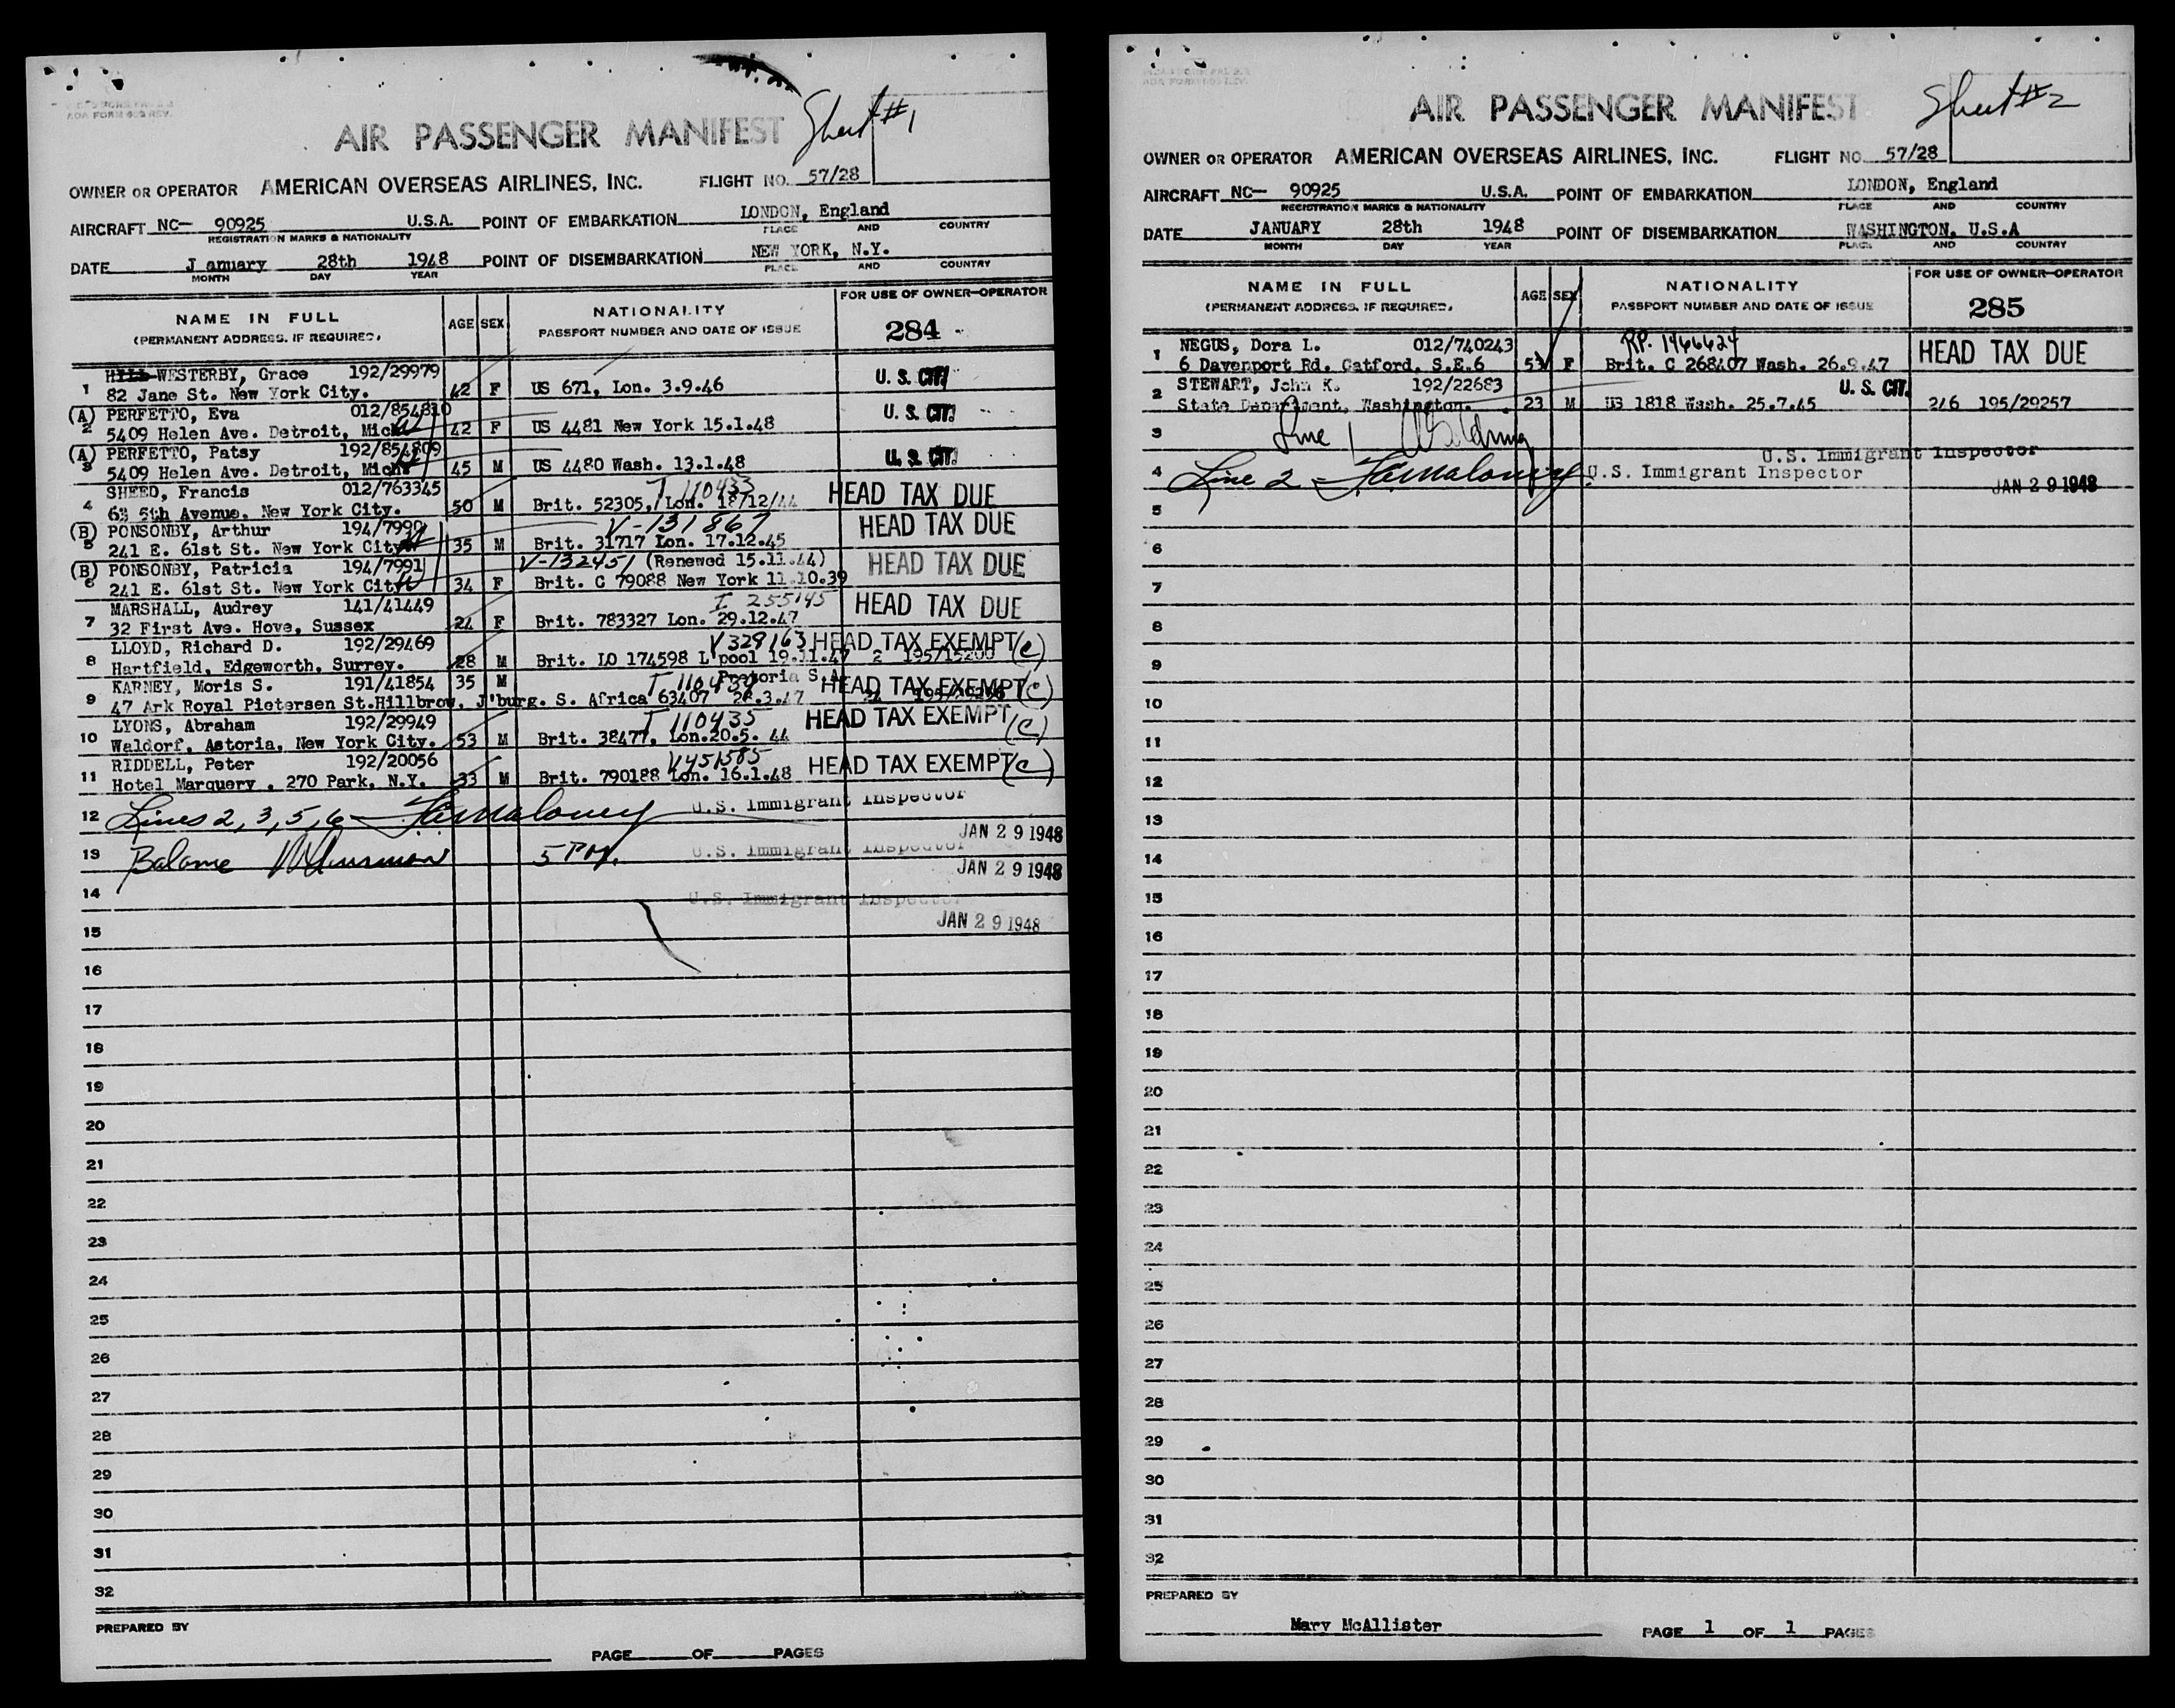 AOA FORM 603 REV.
Sheet #1
AIR PASSENGER MANIFEST
OWNER OR OPERATOR AMERICAN OVERSEAS AIRLINES, INC. FLIGHT NO. 57/28
AIRCRAFT NC- 90925 U.S.A. POINT OF EMBARKATION LONDON, England
REGISTRATION MARKS & NATIONALITY PLACE AND COUNTRY
DATE J anuary 28th 1948 POINT OF DISEMBARKATION NEW YORK, N.Y.
MONTH DAY YEAR PLACE AND COUNTRY
NAME IN FULL AGE SEX NATIONALITY FOR USE OF OWNER-OPERATOR
(PERMANENT ADDRESS, IF REQUIRED) PASSPORT NUMBER AND DATE OF ISSUE 284
WESTERBY, Grace 192/29979
1 82 Jane St. New York City. 42 F US 671, Lon. 3.9.46 U. S. CIT.
(A) PERFETTO, Eva 012/854810
2 5409 Helen Ave. Detroit, Mich. 42 F US 4481 New York 15.1.48 U. S. CIT.
(A) PERFETTO, Patsy 192/854809
3 5409 Helen Ave. Detroit, Mich. 45 M US 4480 Wash. 13.1.48 U. S. CIT.
SHEED, Francis 012/763345 T 110433
4 63 5th Avenue, New York City. 50 M Brit. 52305, Lon. 18/12/44 HEAD TAX DUE
(B) PONSONBY, Arthur 194/7990 V-131867
5 241 E. 61st St. New York City 35 M Brit. 31717 Lon. 17.12.45 HEAD TAX DUE
(B) PONSONBY, Patricia 194/7991 V-132451 (Renewed 15.11.44)
6 241 E. 61st St. New York City 34 F Brit. C 79088 New York 11.10.39 HEAD TAX DUE
MARSHALL, Audrey 141/41449 I 255145
7 32 First Ave. Hove, Sussex 24 F Brit. 783327 Lon. 29.12.47 HEAD TAX DUE
LLOYD, Richard D. 192/29469 V329163 HEAD TAX EXEMPT (C)
8 Hartfield, Edgeworth, Surrey. 28 M Brit. LO 174598 L'pool 19.11.47 2 195/15200
KARNEY, Moris S. 191/41854 35 M T 110434 Pretoria S.A. HEAD TAX EXEMPT (C)
9 47 Ark Royal Pietersen St.Hillbrow, J'burg. S. Africa 63407
LYONS, Abraham 192/29949 T 110435 HEAD TAX EXEMPT (C)
10 Waldorf, Astoria, New York City. 53 M Brit. 38477, Lon.20.5. 44
RIDDELL, Peter 192/20056 V451585
11 Hotel Marquery . 270 Park, N.Y. 33 M Brit. 790188 Lon. 16.1.48 HEAD TAX EXEMPT (C)
12 Lines 2, 3, 5, 6 - U.S. Immigrant Inspector
JAN 29 1948
13 Balance 5 PM. U.S. Immigrant Inspector
JAN 29 1948
14 U.S. Immigrant Inspector
JAN 29 1948
15
16
17
18
19
20
21
22
23
24
25
26
27
28
29
30
31
32
PREPARED BY
PAGE OF PAGES
AOA FORM 603 REV.
Sheet #2
AIR PASSENGER MANIFEST
OWNER OR OPERATOR AMERICAN OVERSEAS AIRLINES, INC. FLIGHT NO. 57/28
AIRCRAFT NC- 90925 U.S.A. POINT OF EMBARKATION LONDON, England
REGISTRATION MARKS & NATIONALITY PLACE AND COUNTRY
DATE JANUARY 28th 1948 POINT OF DISEMBARKATION WASHINGTON, U.S.A
MONTH DAY YEAR PLACE AND COUNTRY
NAME IN FULL AGE SEX NATIONALITY FOR USE OF OWNER-OPERATOR
(PERMANENT ADDRESS, IF REQUIRED) PASSPORT NUMBER AND DATE OF ISSUE 285
NEGUS, Dora L. 012/740243 RP. 1466624
1 6 Davenport Rd. Catford, S.E.6 53 F Brit. C 268407 Wash. 26.9.47 HEAD TAX DUE
STEWART, John K. 192/22683 U. S. CIT.
2 State Department, Washington. 23 M US 1818 Wash. 25.7.45 246 195/29257
3 Line 1
U.S. Immigrant Inspector
4 Line 2 - U.S. Immigrant Inspector
JAN 29 1948
5
6
7
8
9
10
11
12
13
14
15
16
17
18
19
20
21
22
23
24
25
26
27
28
29
30
31
32
PREPARED BY
Mary McAllister PAGE 1 OF 1 PAGES